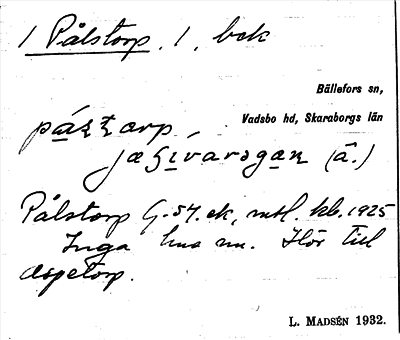 1 Pålstorp, 1, bek
Bällefors sn,
Vadsbo hd, Skaraborgs län
(â.)
Pålstorp G. 54. ek, mtl. kb. 1925
Inga hus nu. Hör till
Aspetorp.
L. MADSÉN 1932.